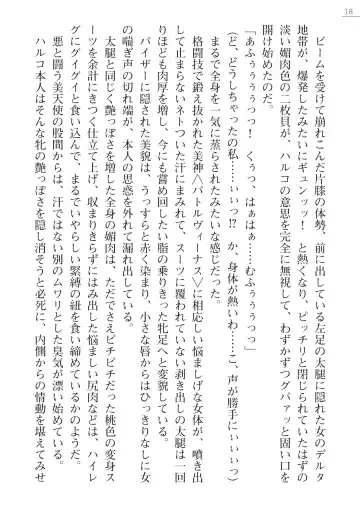 18
ビームを受けて崩れこんだ片膝の体勢、前に出している左足の太腿に隠れた女のデルタ
地帯が、爆発したみたいにギュンッッ! と熱くなり、ピッチリと閉じられていたはずの
淡い媚肉色の二枚貝が、ハルコの意思を完全に無視して、わずかずつグパァッと固い口を
開け始めたのだ。
「あふぅぅぅぅっっ! くぅっ、はぁはぁ……むふぅぅぅっっ」
(ど、どうしちゃったの私……ぃぃっ!? か、身体が熱いわ……こ、声が勝手にぃぃぃっ)
まるで全身を一気に蒸らされたみたいな感じだった。
格闘技で鍛え抜かれた美神〈バトルヴィーナス〉に相応しい悩ましげな女体が、噴き出
して止まらないネトついた汗にまみれて、スーツに覆われていない剥き出しの太腿は一回
りほども肉厚を増し、今にも嘗め回したい脂の乗りきった牝足へと変貌している。
バイザーに隠された美貌は、うっすらと赤く染まり、小さな唇からはひっきりなしに女
の喘ぎ声の切れ端が、本人の思惑を外れて漏れ出している。
太腿と同じく艶っぽさを増した全身の媚肉は、ただでさえピチピチだった桃色の変身ス
ーツを余計にきつく仕立て上げ、収まりきらずにはみ出した悩ましい尻肉などは、ハイレ
グにグイグイと食い込んで、まるでいやらしい緊縛の紐を食い締めているかのようだ。
悪と闘う美天使の股間からは、汗ではない別のムワリとした臭気が漂い始めている。
ハルコ本人はそんな牝の艶っぽさを隠し消そうと必死に、内側からの情動を堪えてみせ